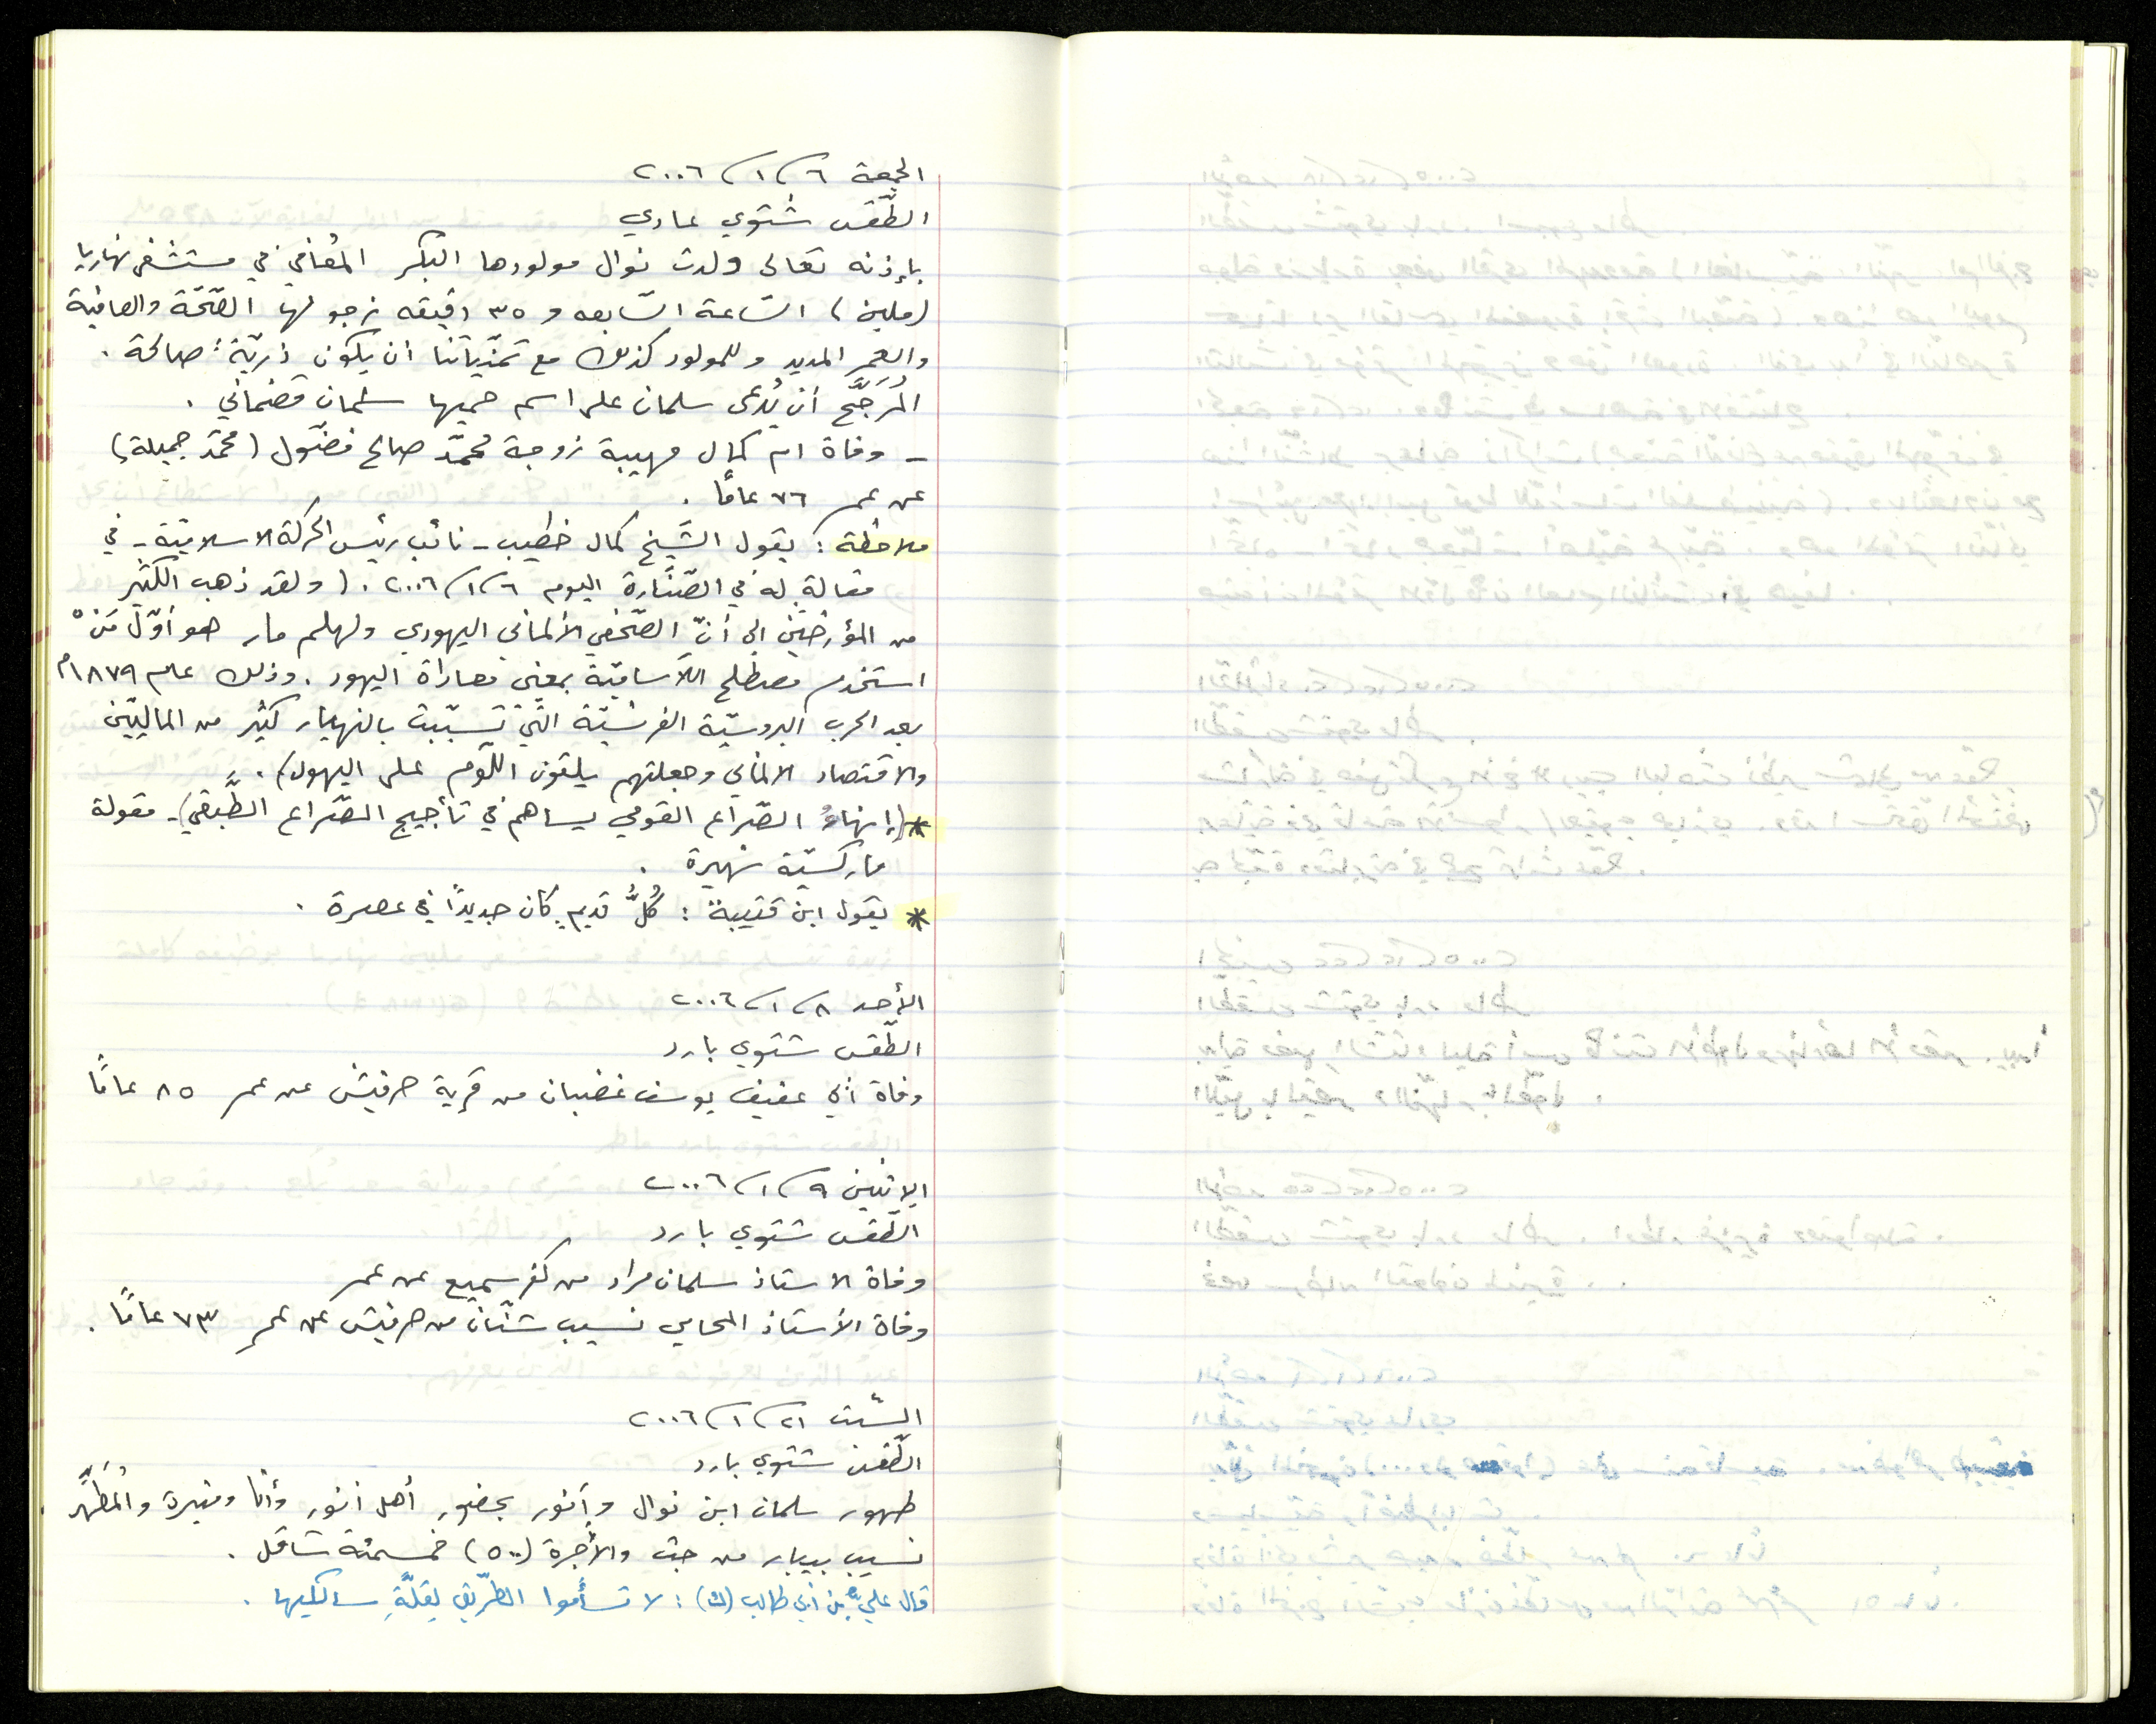 الجمعة ٦/١/٢٠٠٦
الطّقس شتوي عادي
بإذنه تعالى ولدت نوال مولودها البكر المُعافى في مستشفى نهاريا
(ملبن) السّاعة السّابعه و ٣٥ دقيقه نرجو لها الصّحّة والعافية
والعمر المديد وللمولود كذلك مع تمنّياتنا ان يكون ذريّةً صالحة .
المُرَجَّح أن يُدعى سلمان على اسم حميها سلمان قضماني .
- وفاة ام كمال مهيبة زوجة محمّد صالح فضّول (محمّد جميلة)
عن عمر ٧٦ عامًا .
ملاحظة : يقول الشّيخ كمال خطيب - نائب رئيس الحركة الاسلاميّة - في
مقالةٍ له في الصّنّارة اليوم ٦/١/٢٠٠٦ . ( ولقد ذهب الكثير
من المؤرخين الى أنّ الصّحفي الألماني اليهودي ولهلم مار هو أوّل مَنْ
استخدم مصطلح اللّاساميّة بمعنى معاداة اليهود . وذلك عام ١٨٧٩م
بعد الحرب البروسيّة الفرنسيّة الّتي تسبّبت بانهيار كثير من الماليّين
والاقتصاد الالماني وجعلتهم يلقون اللّوم على اليهود) .
* (إنهاءُ الصّراع القومي يساهم في تأجيج الصّراع الطَّبقي) - مقولة
ماركسيّة شهيرة .
* يقول ابن قتيبة : كُلُّ قديمٍ كان جديدًا في عصرة .
الأحد ٨/١/٢٠٠٦
الطّقس شتوي بارد
وفاة أبي عفيف يوسف غضبان من قرية حرفيش عن عمر ٨٥ عامًا
الإثنين ٩/١/٢٠٠٦
الطّقس شتوي بارد
وفاة الاستاذ سلمان مراد من كفر سميع عن عمر
وفاة الأستاذ المحامي نسيب شنّان من حرفيش عن عمر ٧٣ عامًا .
السّبت ٢١/١/٢٠٠٦
الطّقس شتوي بارد
طهور سلمان ابن نوال وأنور بحضور أهل انور وأنا ومنيرة والمُطَهِّر .
نسيب بيبار من جث والأجرة (٥٠٠) خمسمئة شاقل .
قال عليّ بن أبي طالب (ك) : لا تسأموا الطّريق لِقلّةِ سالكيها .